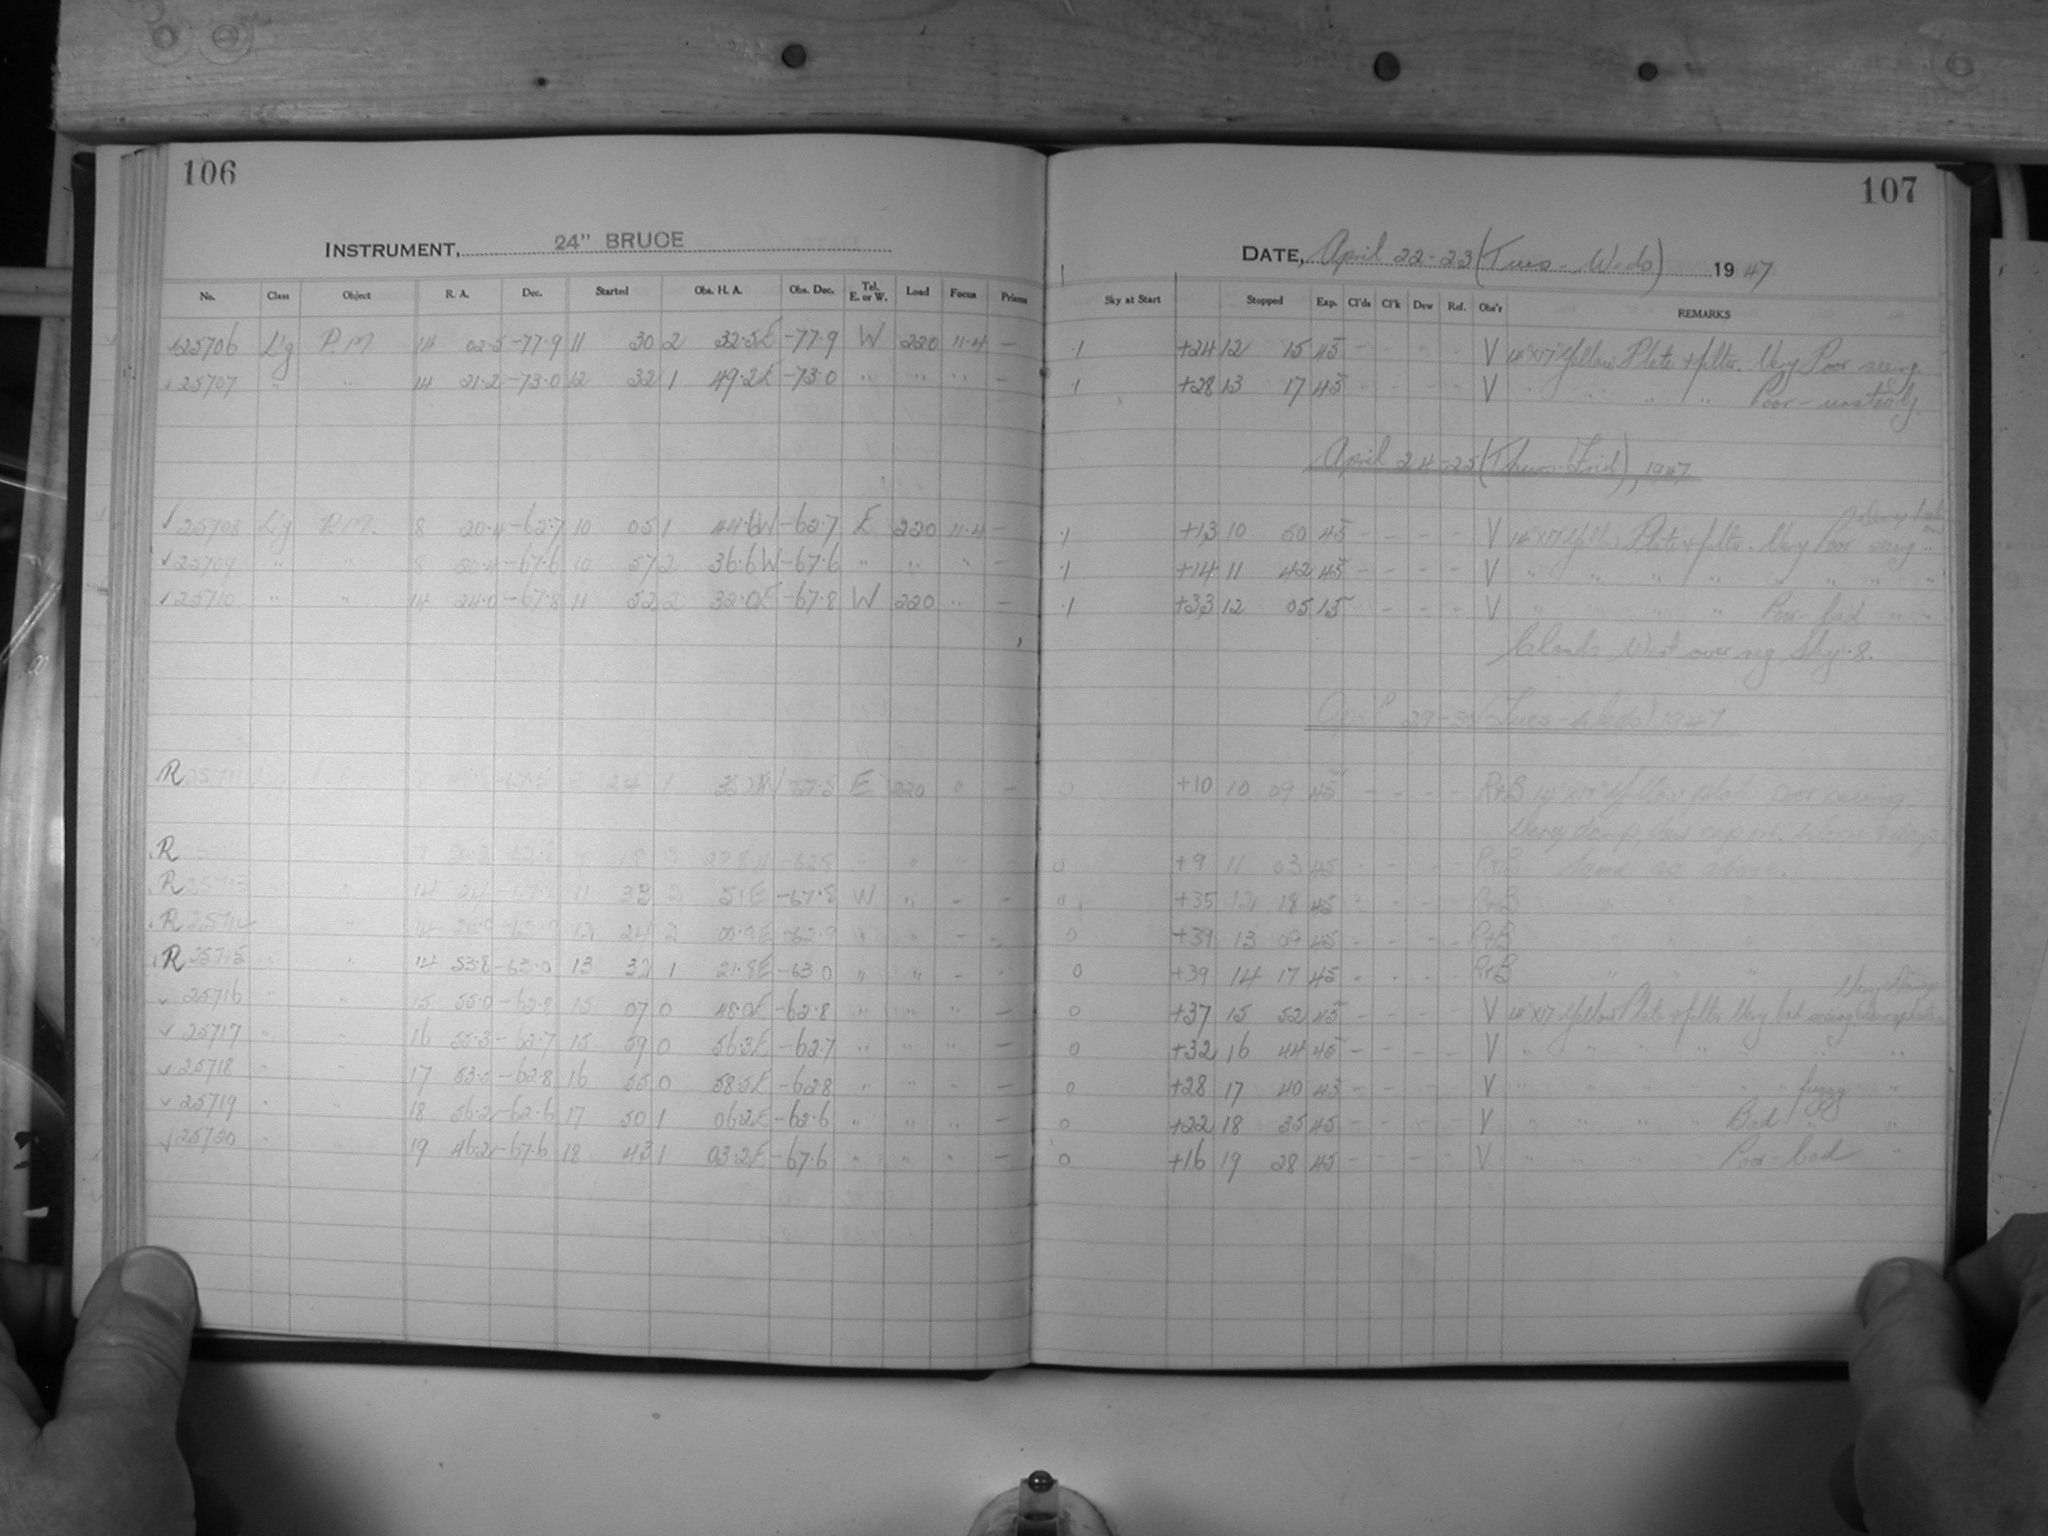 106
107
INSTRUMENT, 24" BRUCE
DATE, April 22-23 (Tues - Weds) 1947
No. Class Object R. A. Dec. Started Obs. H. A. Obs. Dec. Tel. E. or W. Load Focus Prisms Sky at Start Stopped Exp. Cl'ds Cl'k Dew Ref. Obs'r REMARKS
25706 L'g P.M. 14 02.5 -77.9 11 30 2 32.5E -77.9 W 220 11.4 - .1 +24 12 15 45 - - - - V 14"x17" Yellow Plate + filter. Very Poor seeing.
25707 " " 14 21.2 -73.0 12 32 1 49.2E -73.0 " " " - .1 +28 13 17 45 - - - - V " " " " Poor - unsteady.
April 24-25 (Thurs-Frid), 1947
25708 L'g P.M. 8 20.4 -62.7 10 05 1 44.6W -62.7 E 220 11.4 - .1 +13 10 50 45 - - - - V 14"x17" Yellow Plate + filter. Very Poor seeing
25709 " " 8 20.4 -67.6 10 57 2 36.6W -67.6 " " " - .1 +14 11 42 45 - - - - V " " " " " " "
25710 " " 14 24.0 -67.8 11 52 2 32.0E -67.8 W 220 " - .1 +33 12 05 15 - - - - V " " " " Poor-bad " "
Clouds West over reg. Sky .8.
April 29-30 (Tues-Weds) 1947
R 25711 24 1 -67.5 E 220 " - 0 +10 10 09 45 - - - - R+B 14"x17" Yellow plate Poor seeing
Very damp, dew cap on.
R 0 +9 11 03 45 - - - - R+B Same as above.
R 25713 " 14 24 -67.8 11 33 2 51E -67.8 W " - - 0 +35 12 18 45 - - - - R+B " " "
R 25714 " 14 12 24 2 00.9E -62.9 " " - - 0 +39 13 09 45 - - - - R+B " " "
R 25715 " " 14 53.8 -63.0 13 32 1 21.8E -63.0 " " - - 0 +39 14 17 45 - - - - R+B " " "
25716 " " 15 55.0 -62.8 15 07 0 48.0E -62.8 " " " - 0 +37 15 52 45 - - - - V 14"x17" Yellow Plate + filter Very bad seeing
25717 " " 16 55.3 -62.7 15 59 0 56.3E -62.7 " " " - 0 +32 16 44 45 - - - - V " " " " " " "
25718 " " 17 53.5 -62.8 16 55 0 58.5E -62.8 " " " - 0 +28 17 40 45 - - - - V " " " " " fuzzy "
25719 " " 18 56.2 -62.6 17 50 1 06.2E -62.6 " " " - 0 +22 18 35 45 - - - - V " " " " Bad " "
25720 " " 19 46.2 -67.6 18 43 1 03.2E -67.6 " " " - 0 +16 19 28 45 - - - - V " " " " Poor-bad "